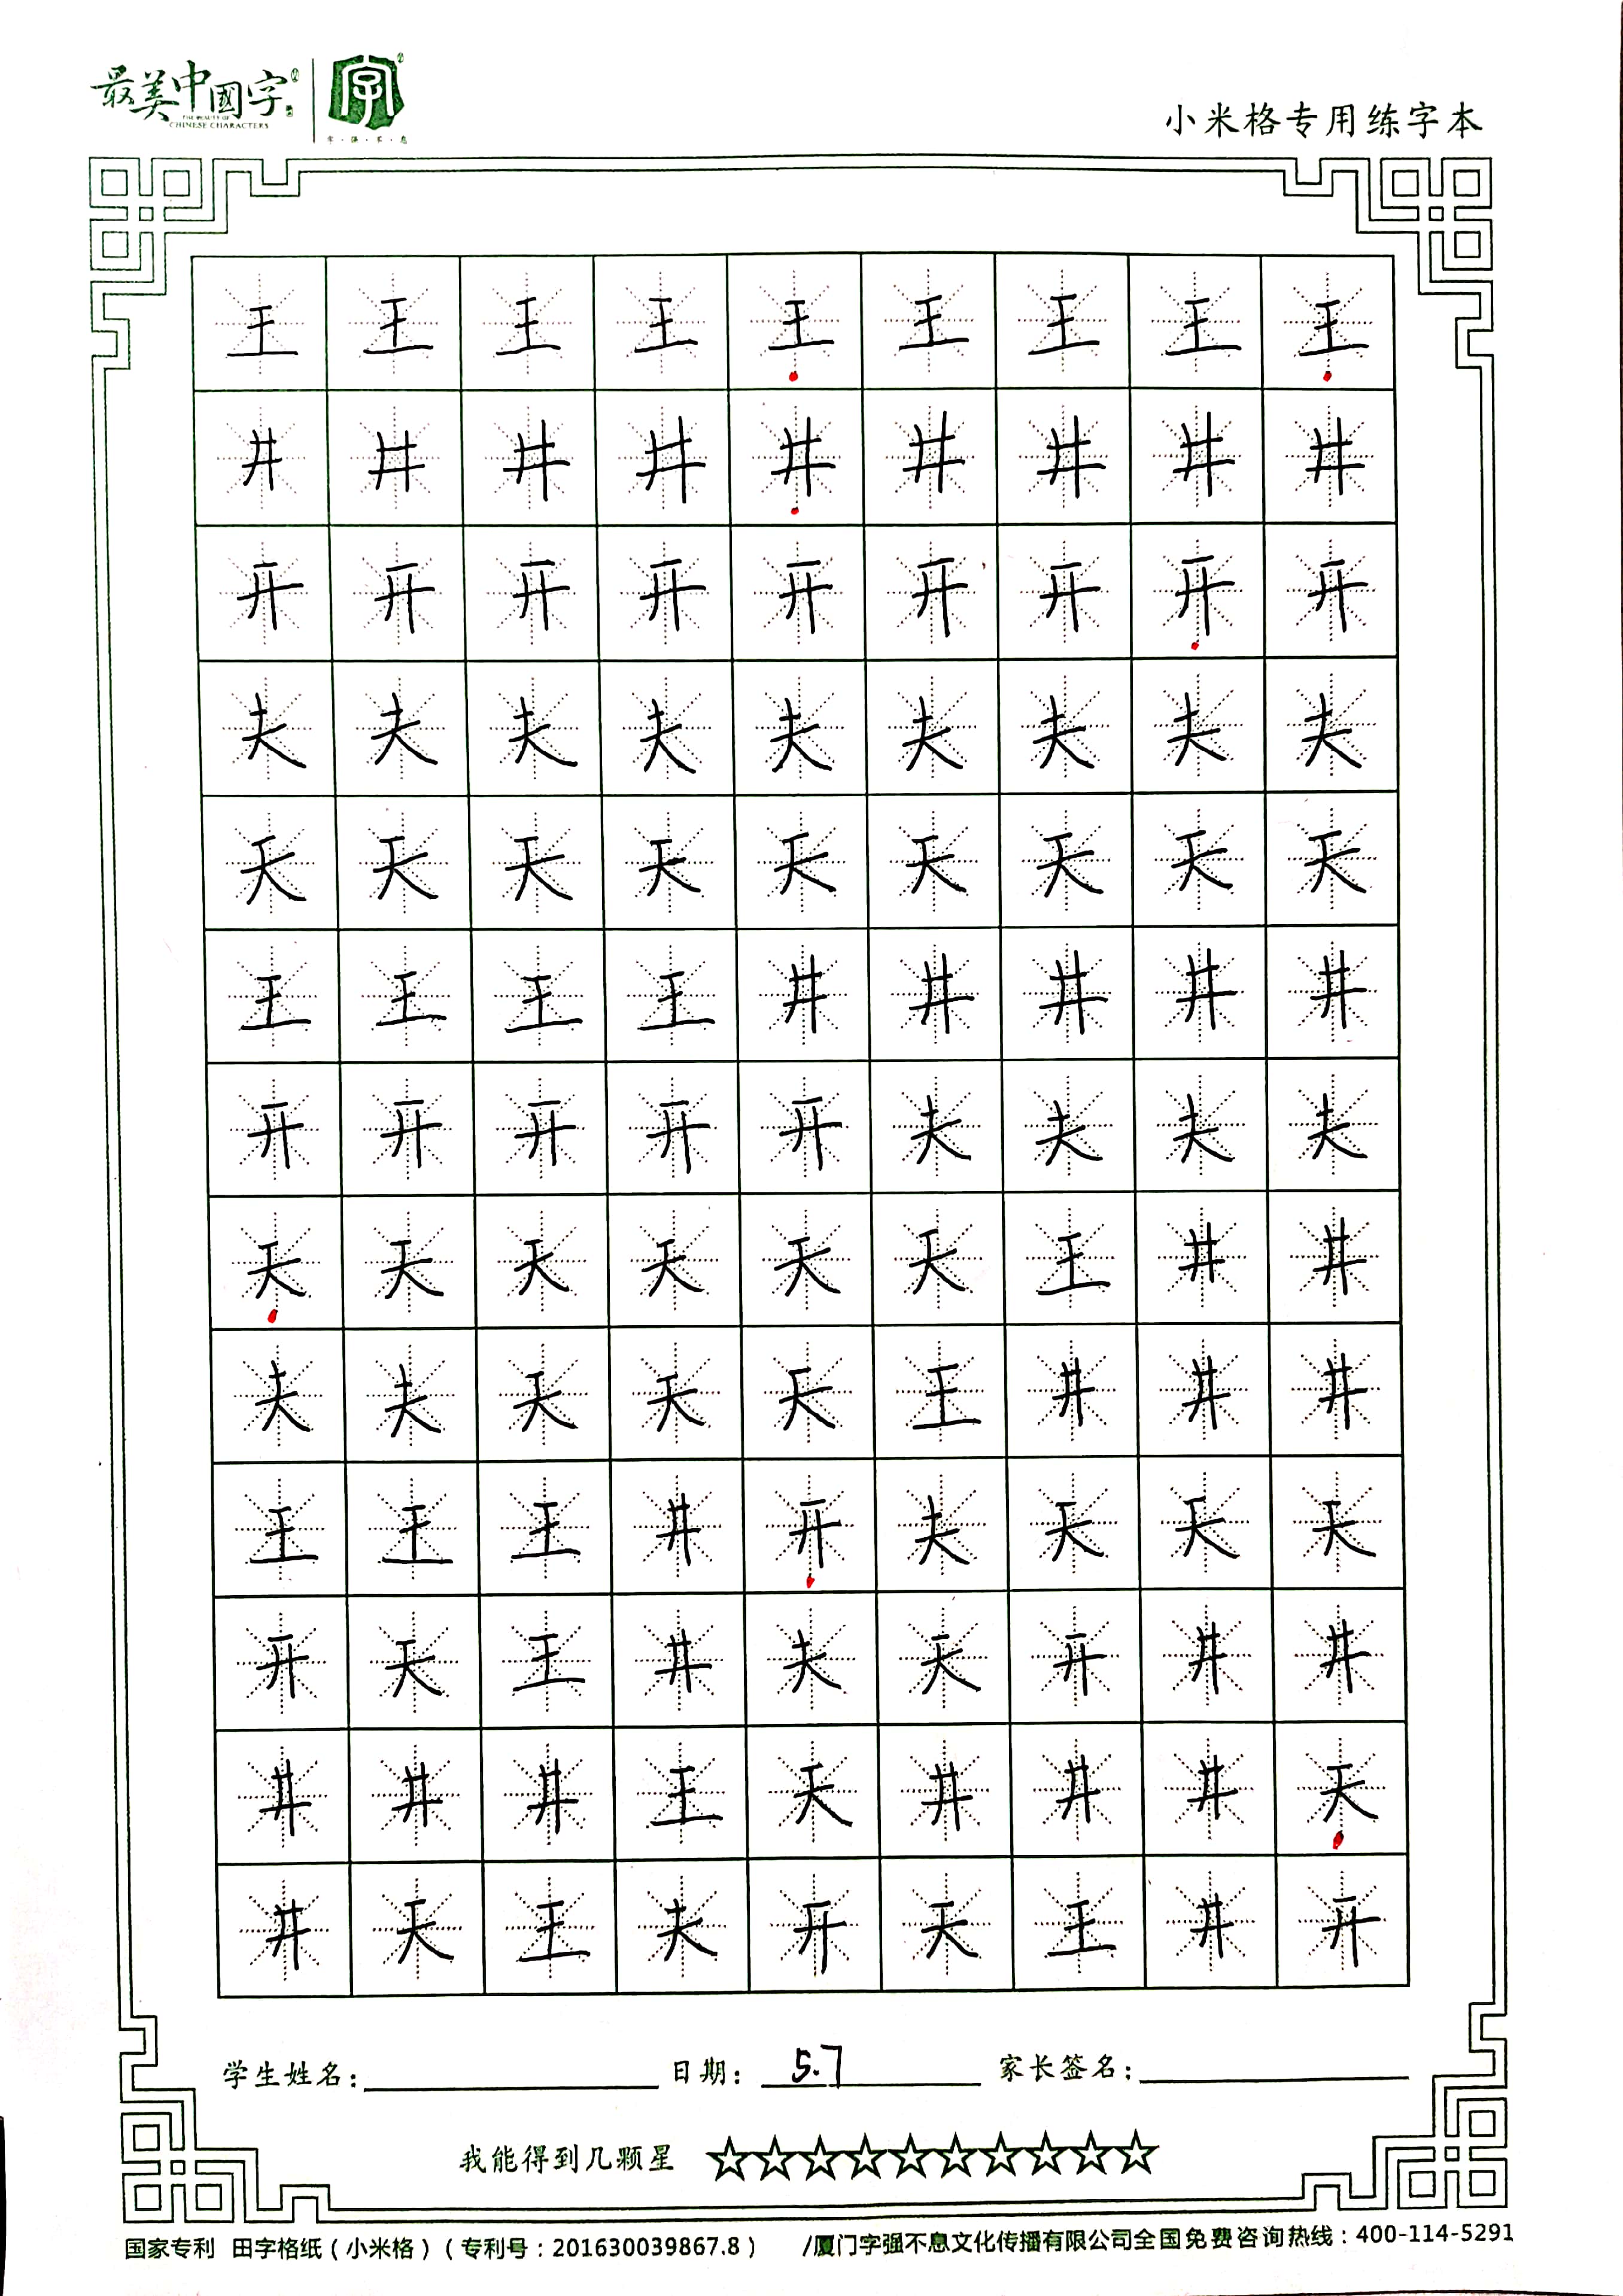 最美中國字
THE BEAUTY OF
CHINESE CHARACTERS
字
字·强·不·息
小米格专用练字本
王 王 王 王 王 王 王 王 王
井 井 井 井 井 井 井 井 井
开 开 开 开 开 开 开 开 开
夫 夫 夫 夫 夫 夫 夫 夫 夫
天 天 天 天 天 天 天 天 天
王 王 王 王 井 井 井 井 井
开 开 开 开 开 夫 夫 夫 夫
天 天 天 天 天 天 王 井 井
夫 夫 天 天 天 王 井 井 井
王 王 王 井 开 夫 天 天 天
开 天 王 井 夫 天 开 井 井
井 井 井 王 天 井 井 井 天
井 天 王 夫 开 天 王 井 开
学生姓名: 日期: 5.7 家长签名:
我能得到几颗星 ☆☆☆☆☆☆☆☆☆☆
国家专利 田字格纸(小米格)(专利号:201630039867.8) /厦门字强不息文化传播有限公司全国免费咨询热线:400-114-5291